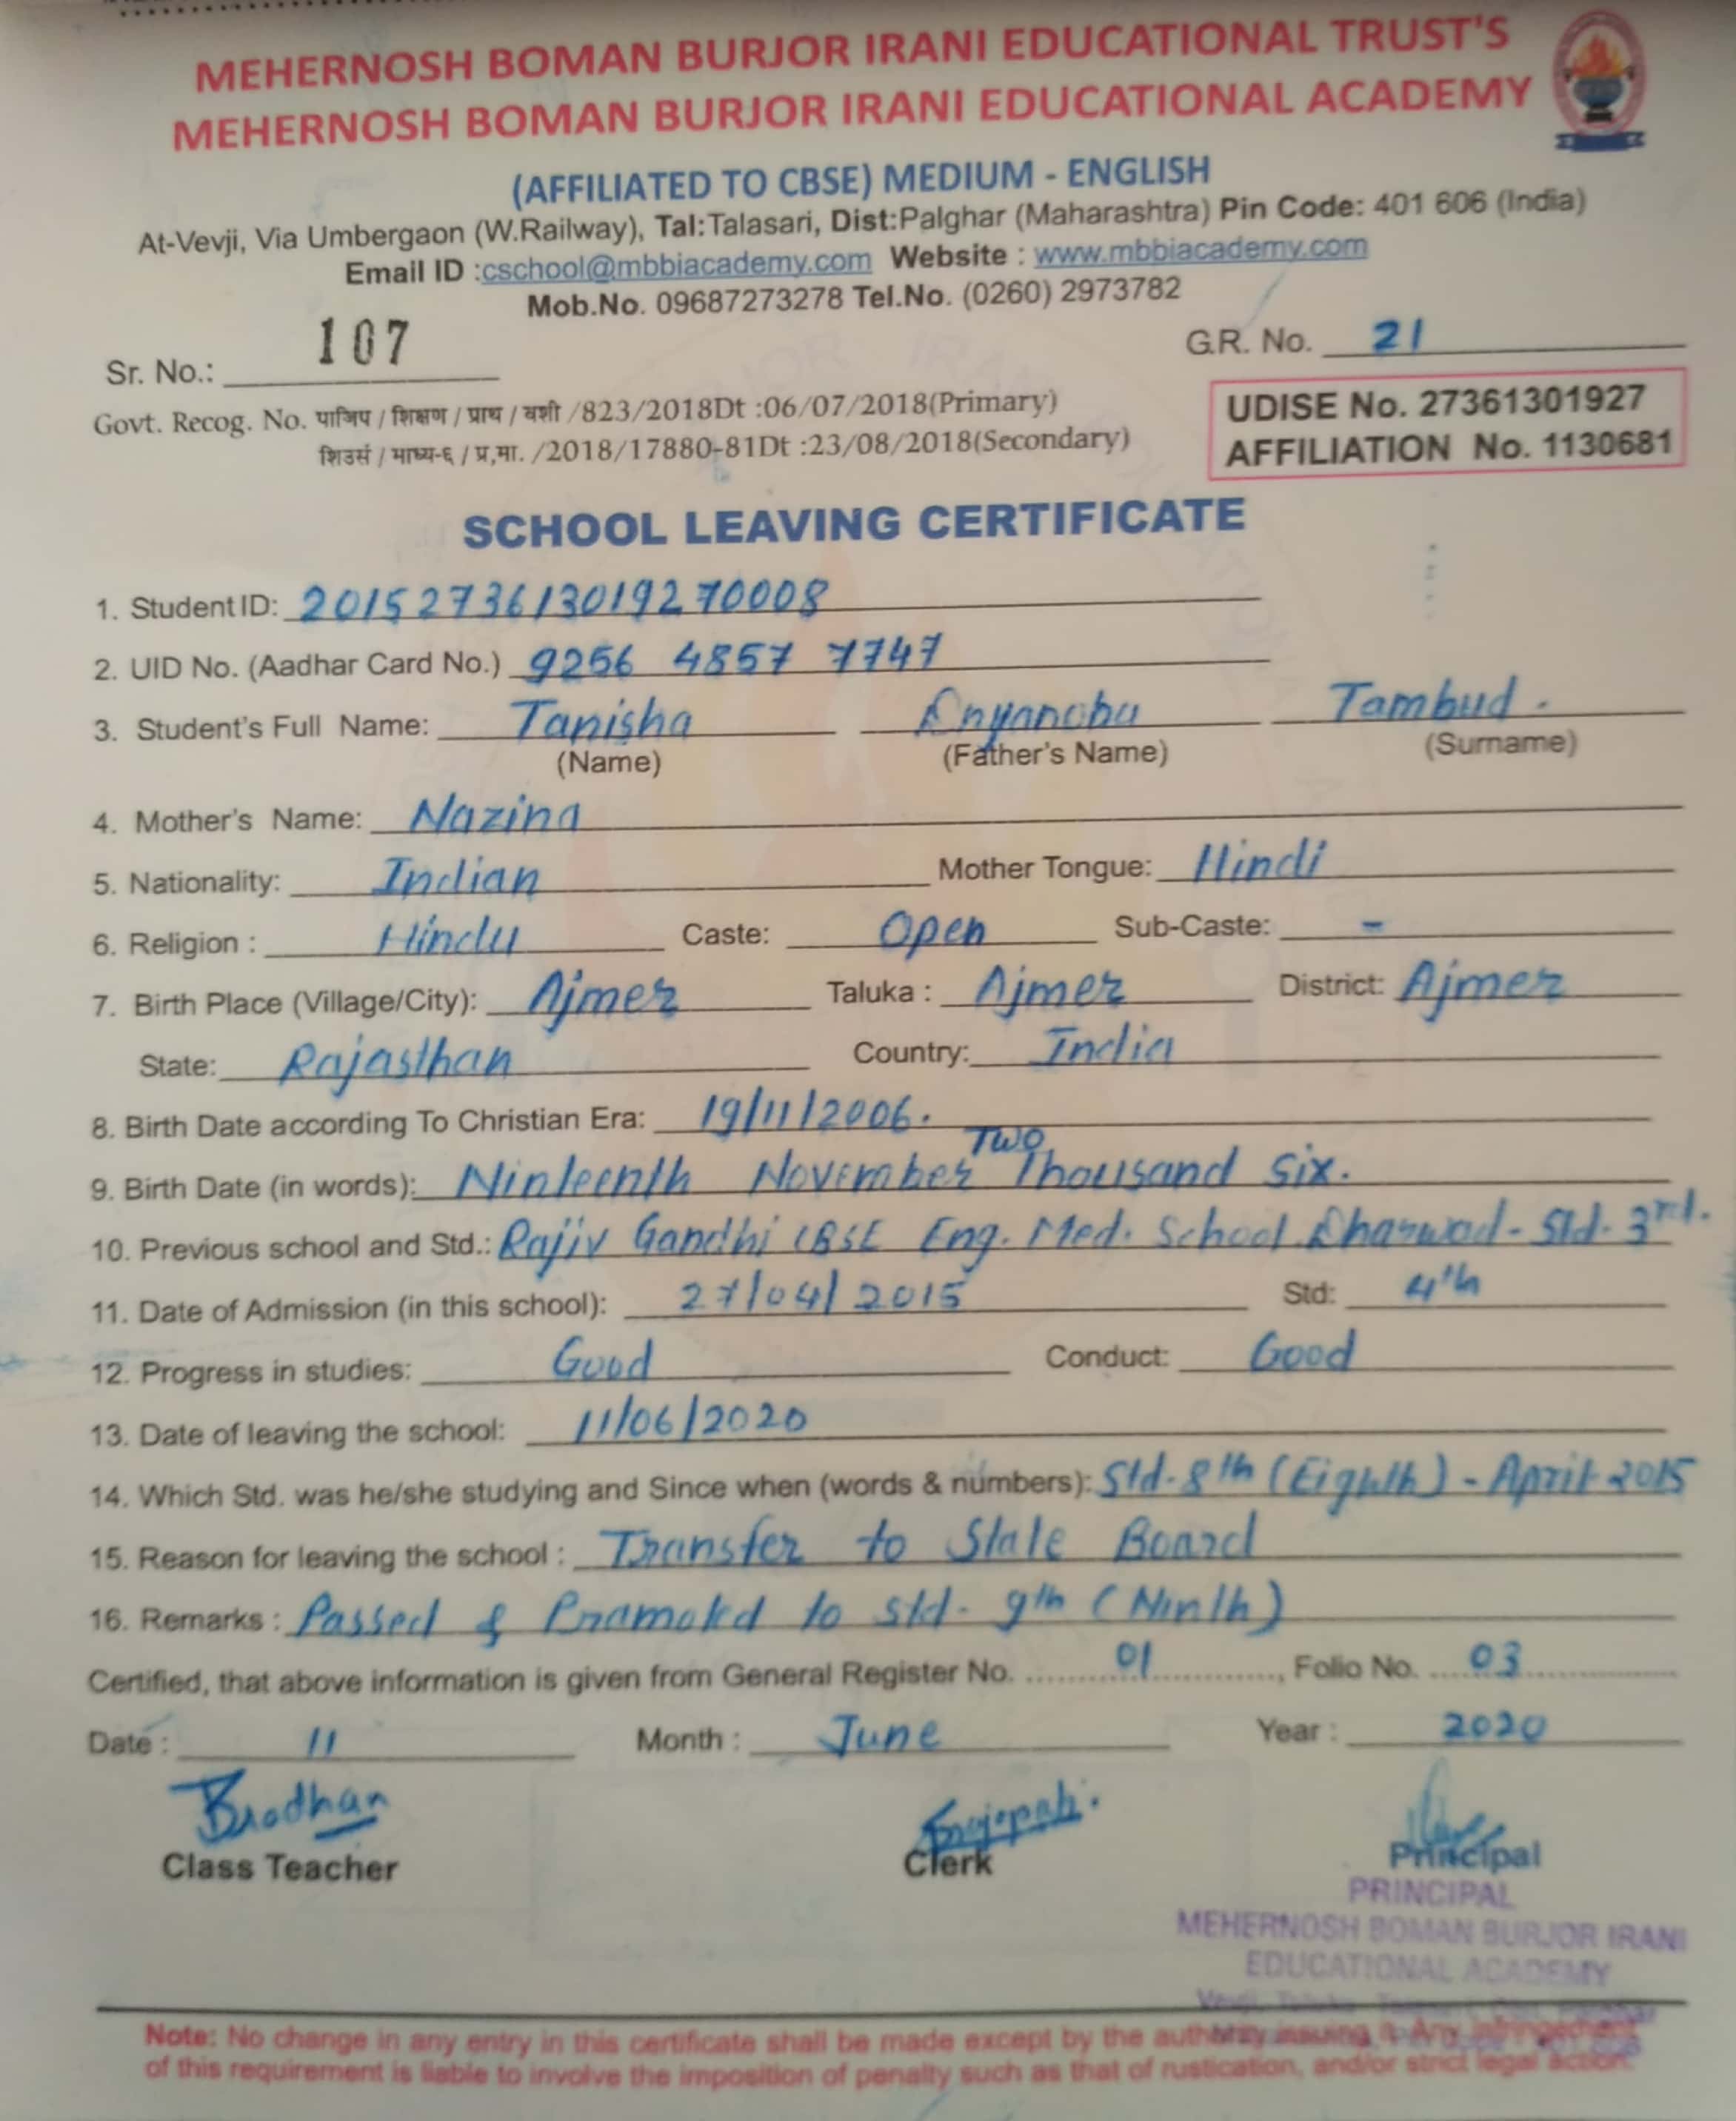 MEHERNOSH BOMAN BURJOR IRANI EDUCATIONAL TRUST'S
MEHERNOSH BOMAN BURJOR IRANI EDUCATIONAL ACADEMY
(AFFILIATED TO CBSE) MEDIUM - ENGLISH
At-Vevji, Via Umbergaon (W.Railway), Tal:Talasari, Dist:Palghar (Maharashtra) Pin Code: 401 606 (India)
Email ID :cschool@mbbiacademy.com Website : www.mbbiacademy.com
Mob.No. 09687273278 Tel.No. (0260) 2973782
Sr. No.: 107 G.R. No. 21
Govt. Recog. No. पाजिप / शिक्षण / प्राथ / वशी /823/2018Dt :06/07/2018(Primary)
शिउसं / माध्य-६ / प्र,मा. /2018/17880-81Dt :23/08/2018(Secondary)
UDISE No. 27361301927
AFFILIATION No. 1130681
SCHOOL LEAVING CERTIFICATE
1. Student ID: 2015273613019270008
2. UID No. (Aadhar Card No.) 9256 4857 7747
3. Student's Full Name: Tanisha Tambud.
(Name) (Father's Name) (Surname)
4. Mother's Name: Nazina
5. Nationality: Indian Mother Tongue: Hindi
6. Religion : Hindu Caste: Open Sub-Caste: -
7. Birth Place (Village/City): Ajmer Taluka : Ajmer District: Ajmer
State: Rajasthan Country: India
8. Birth Date according To Christian Era: 19/11/2006.
9. Birth Date (in words): Ninteenth November Two Thousand Six.
10. Previous school and Std.: Rajiv Gandhi CBSE Eng. Med. School Dharwad - Std- 3rd.
11. Date of Admission (in this school): 27/04/2015 Std: 4th
12. Progress in studies: Good Conduct: Good
13. Date of leaving the school: 11/06/2020
14. Which Std. was he/she studying and Since when (words & numbers): Std-8th (Eighth) - April 2015
15. Reason for leaving the school : Transfer to State Board
16. Remarks : Passed & Pramoted to Std- 9th (Ninth)
Certified, that above information is given from General Register No. ........01............, Folio No. ....03..............
Date : 11 Month : June Year : 2020
Class Teacher Clerk Principal
PRINCIPAL
MEHERNOSH BOMAN BURJOR IRANI
EDUCATIONAL ACADEMY
Note: No change in any entry in this certificate shall be made except by the authority issuing it. Any infringement
of this requirement is liable to involve the imposition of penalty such as that of rustication, and/or strict legal action.